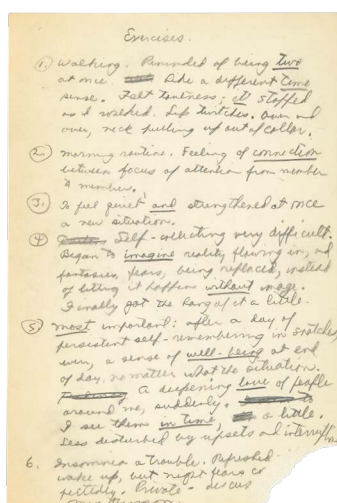 Exercises.
1. Walking. Reminded of being two
at once. Also a different time
sense. Felt tautness; it stopped
as I walked. Lip twitches. Over and
over, neck pulling up out of collar.
2. Morning routine. Feeling of connection
between focus of attention from member
to member.
3. To feel quiet and strengthened at once
in a new situation.
4. Self-collecting very difficult.
Began to imagine reality flowing in, and
fantasies, fears, being replaced, instead
of letting it happen without image.
Finally got the hang of it a little.
5. Most important: after a day of
persistent self-remembering in snatches,
even, a sense of well-being at end
of day, no matter what the situation.
A deepening love of people
around me, suddenly.
I see them in time, a little.
Less disturbed by upsets and
6. Insomnia a trouble. Refreshed
wake up, but night fears
Private - discus